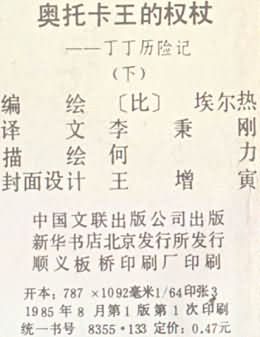 奥托卡王的权杖
——丁丁历险记
（下）
编绘〔比〕埃尔热
译文李秉刚
描绘何力
封面设计王增寅
中国文联出版公司出版
新华书店北京发行所发行
顺义板桥印刷厂印刷
开本：787×1092毫米1/64印张3
1985年8月第1版第1次印刷
统一书号 8355·133 定价：0.47元